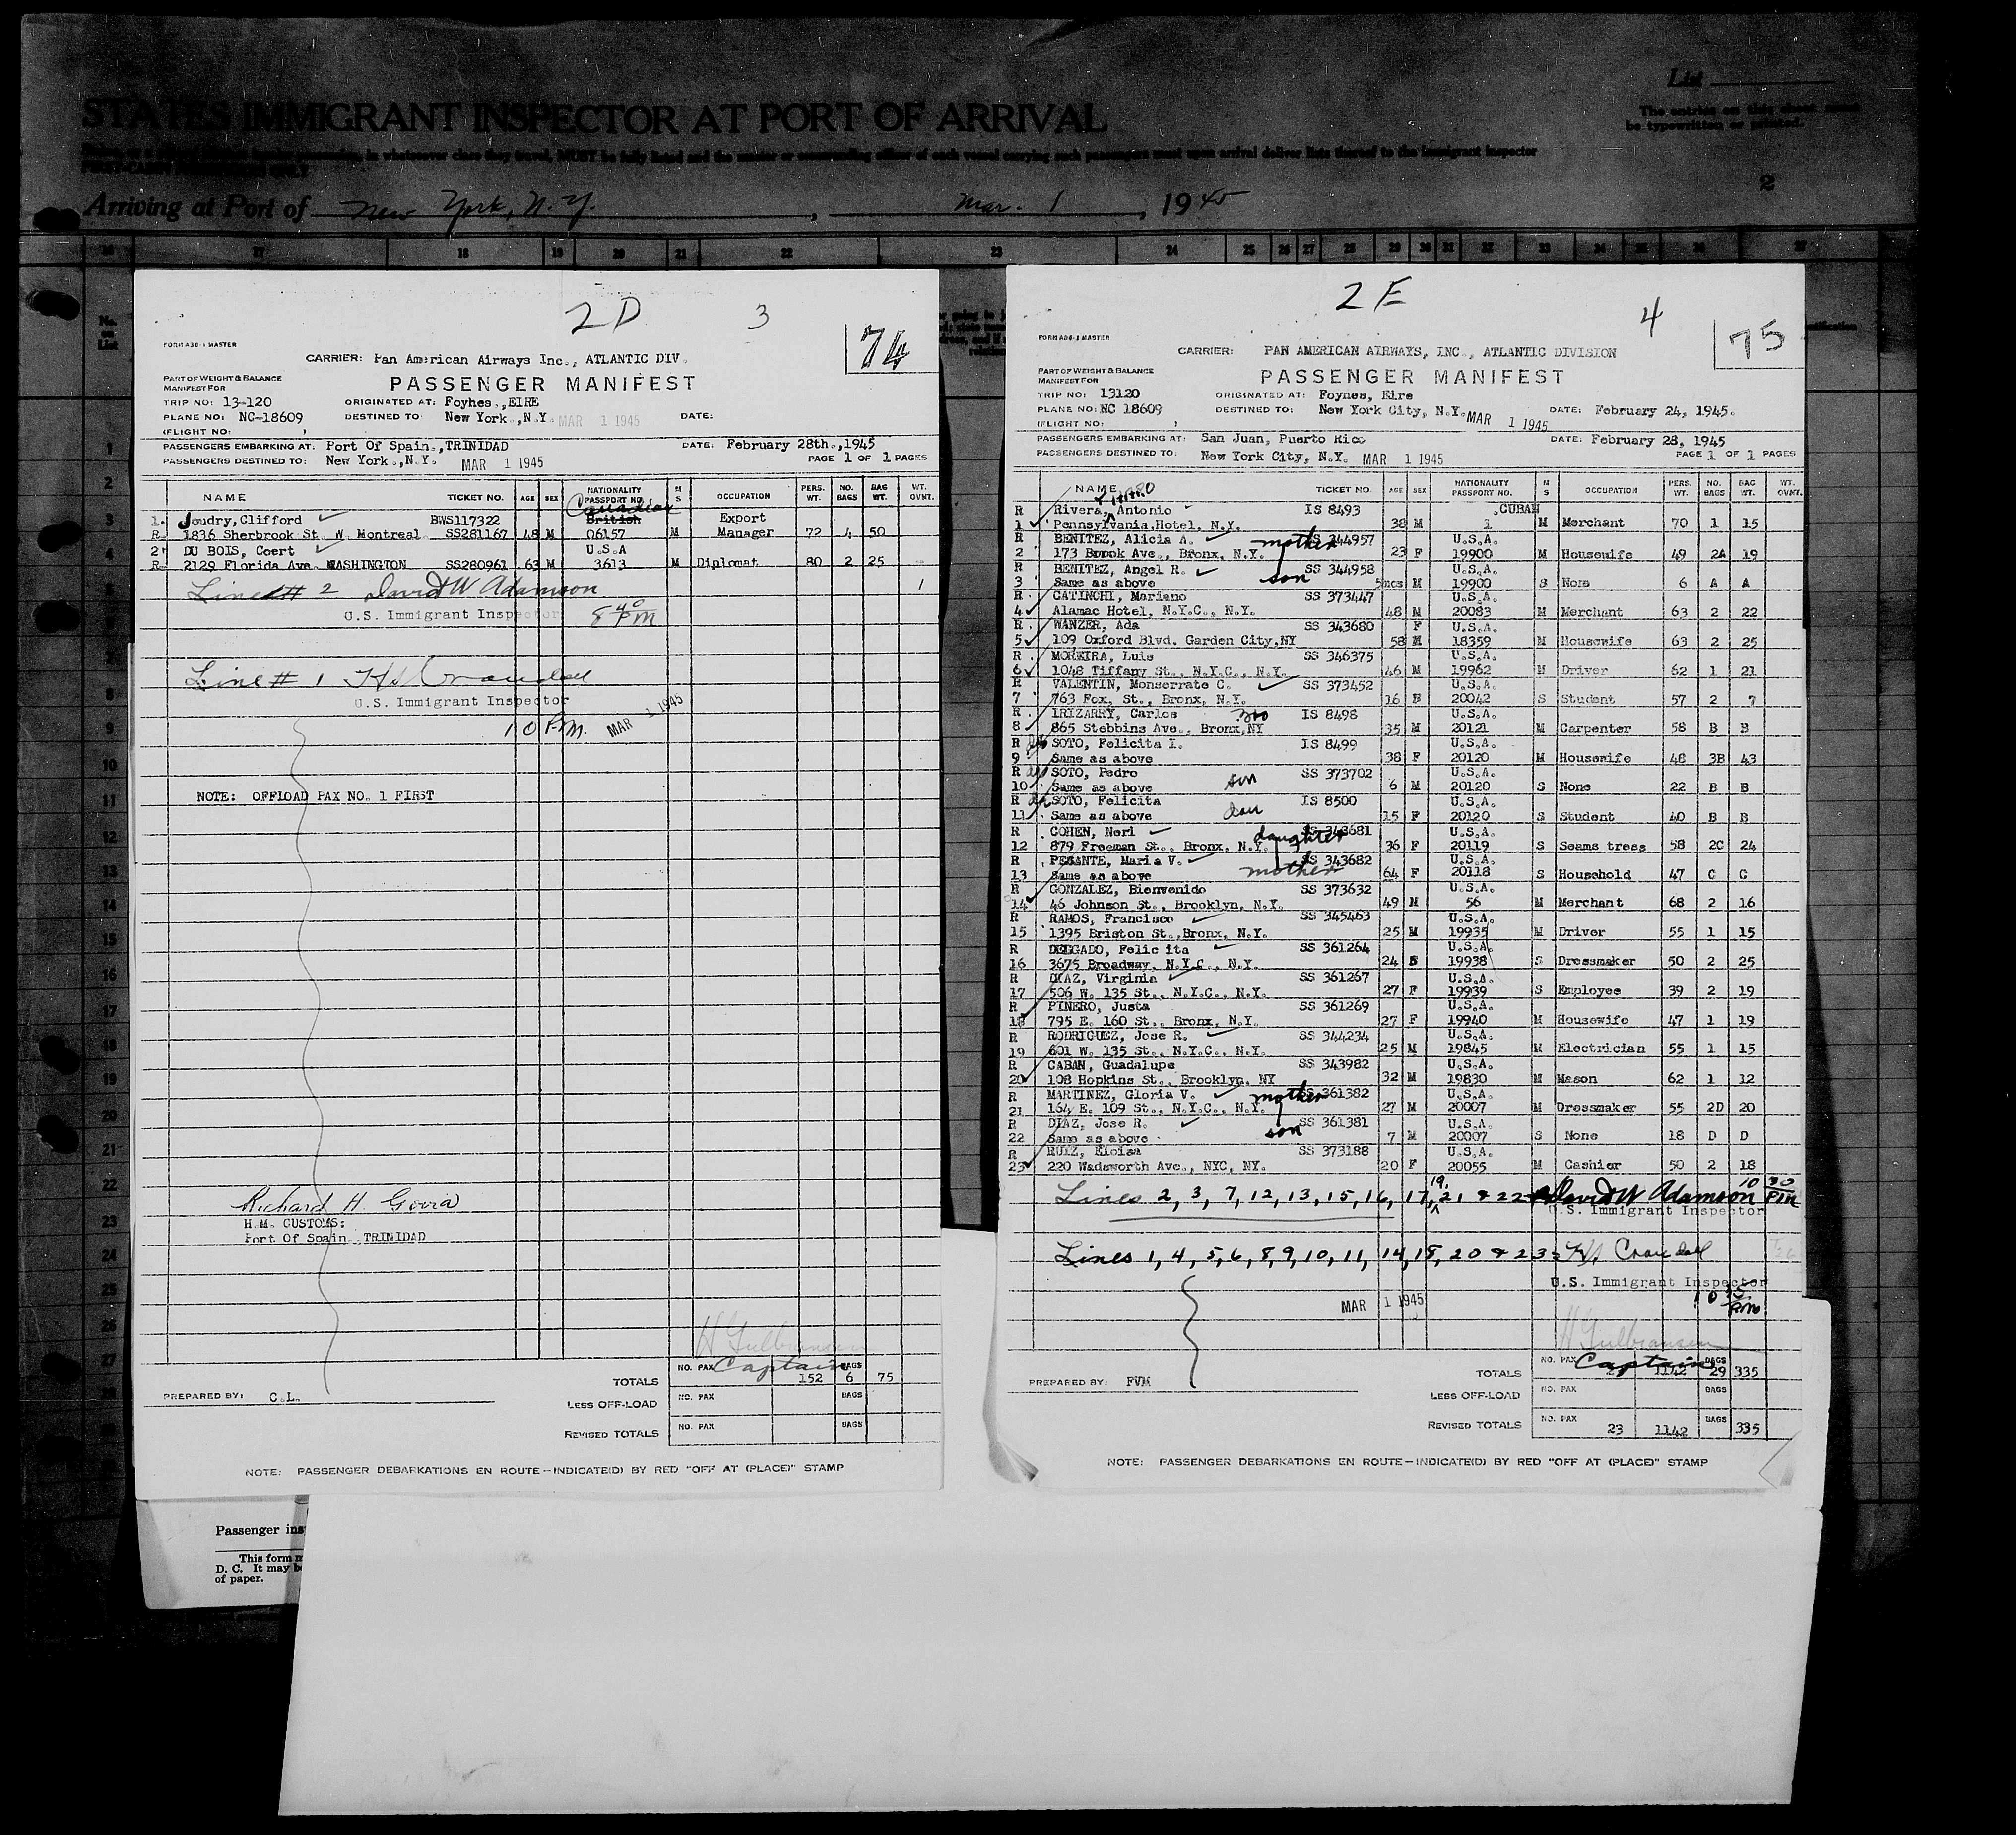 List
STATES IMMIGRANT INSPECTOR AT PORT OF ARRIVAL
The entries on this sheet must
be typewritten or printed.
2
Arriving at Port of New York, N.Y., Mar. 1, 1945
17 18 19 20 21 22 23 24 25 26 27 28 29 30 31 32 33 34 35 36 37
No. on List
2D 3
74
FORM A30-1 MASTER
CARRIER: Pan American Airways Inc., ATLANTIC DIV.
PART OF WEIGHT & BALANCE
MANIFEST FOR
PASSENGER MANIFEST
TRIP NO: 13-120 ORIGINATED AT: Foyhes.,EIRE
PLANE NO: NC-18609 DESTINED TO: New York.,N.Y. MAR 1 1945 DATE:
(FLIGHT NO: )
PASSENGERS EMBARKING AT: Port Of Spain.,TRINIDAD DATE: February 28th.,1945
PASSENGERS DESTINED TO: New York.,N.Y. MAR 1 1945 PAGE 1 OF 1 PAGES
NAME TICKET NO. AGE SEX NATIONALITY PASSPORT NO. M S OCCUPATION PERS. WT. NO. BAGS BAG WT. WT. OVNT.
Canadian
1. Joudry,Clifford BWS117322 British Export
R. 1836 Sherbrook St. W. Montreal SS281167 48 M 06157 M Manager 72 4 50
2. DU BOIS, Coert U.S.A
R. 2129 Florida Ave. WASHINGTON SS280961 63 M 3613 M Diplomat 80 2 25
Line # 2 David W Adamson 1
U.S. Immigrant Inspector 8 40 PM
Line # 1 H. Crandall
U.S. Immigrant Inspector
10 P.M. MAR 1 1945
NOTE: OFFLOAD PAX NO. 1 FIRST
Richard H. Govia
H.M. CUSTOMS:
Port Of Spain. TRINIDAD
H Gulbransen
Captain
TOTALS NO. PAX 152 BAGS 6 75
PREPARED BY: C.L.
LESS OFF-LOAD NO. PAX BAGS
REVISED TOTALS NO. PAX BAGS
NOTE: PASSENGER DEBARKATIONS EN ROUTE—INDICATE(D) BY RED "OFF AT (PLACE)" STAMP
Passenger ins
This form m
D. C. It may be
of paper.
2E 4
75
FORM A30-1 MASTER
CARRIER: PAN AMERICAN AIRWAYS, INC., ATLANTIC DIVISION
PART OF WEIGHT & BALANCE
MANIFEST FOR
PASSENGER MANIFEST
TRIP NO: 13120 ORIGINATED AT: Foynes, Eire
PLANE NO: NC 18609 DESTINED TO: New York City, N.Y. MAR 1 1945 DATE: February 24, 1945.
(FLIGHT NO: )
PASSENGERS EMBARKING AT: San Juan, Puerto Rico DATE: February 28, 1945
PASSENGERS DESTINED TO: New York City, N.Y. MAR 1 1945 PAGE 1 OF 1 PAGES
NAME TICKET NO. AGE SEX NATIONALITY PASSPORT NO. M S OCCUPATION PERS. WT. NO. BAGS BAG WT. WT. OVNT.
R Rivera, Antonio IS 8493 .CUBAN
1 Pennsylvania.Hotel. N.Y. 38 M 1 M Merchant 70 1 15
R BENITEZ, Alicia A. mother SS 344957 U.S.A.
2 173 Brook Ave., Bronx, N.Y. 23 F 19900 M Housewife 49 2A 19
R BENITEZ, Angel R. son SS 344958 U.S.A.
3 Same as above 5mos M 19900 S Nora 6 A A
R. CATINCHI, Mariano SS 373447 U.S.A.
4 Alamac Hotel, N.Y.C., N.Y. 48 M 20083 M Merchant 63 2 22
R. WANZER, Ada SS 343680 F U.S.A.
5 109 Oxford Blvd. Garden City,NY 58 M 18359 M Housewife 63 2 25
R MOREIRA, Luis SS 346375 U.S.A.
6 1048 Tiffany St., N.Y.C., N.Y. 46 M 19962 M Driver 62 1 21
R VALENTIN, Monserrate C. SS 373452 U.S.A.
7 763 Fox. St., Bronx, N.Y. 16 S 20042 S Student 57 2 7
R. IRIZARRY, Carlos IS 8498 U.S.A.
8 865 Stebbins Ave., Bronx,NY 35 M 20121 M Carpenter 58 B B
R SOTO, Felicita I. IS 8499 U.S.A.
9 Same as above 38 F 20120 M Housewife 48 3B 43
R SOTO, Pedro son SS 373702 U.S.A.
10 Same as above 6 M 20120 S None 22 B B
R SOTO, Felicita dau IS 8500 U.S.A.
11 Same as above 15 F 20120 S Student 40 B B
R COHEN, Neri daughter SS 343681 U.S.A.
12 879 Freeman St., Bronx, N.Y. 36 F 20119 S Seams tress 58 2C 24
R PESANTE, Maria V. mother SS 343682 U.S.A.
13 Same as above 64 F 20118 S Household 47 C C
R GONZALEZ, Bienvenido SS 373632 U.S.A.
14 46 Johnson St., Brooklyn, N.Y. 49 M 56 M Merchant 68 2 16
R RAMOS, Francisco SS 345463 U.S.A.
15 1395 Briston St.,Bronx, N.Y. 25 M 19935 M Driver 55 1 15
R DELGADO, Felic ita SS 361264 U.S.A.
16 3675 Broadway, N.Y.C., N.Y. 24 S 19938 S Dressmaker 50 2 25
R DIAZ, Virginia SS 361267 U.S.A.
17 506 W. 135 St., N.Y.C., N.Y. 27 F 19939 S Employee 39 2 19
R PINERO, Justa SS 361269 U.S.A.
18 795 E. 160 St., Bronx, N.Y. 27 F 19940 M Housewife 47 1 19
R RODRIGUEZ, Jose R. SS 344234 U.S.A.
19 601 W. 135 St., N.Y.C., N.Y. 25 M 19845 M Electrician 55 1 15
R CABAN, Guadalupe SS 343982 U.S.A.
20 108 Hopkins St., Brooklyn, NY 32 M 19830 M Mason 62 1 12
R MARTINEZ, Gloria V. mother SS 361382 U.S.A.
21 164 E. 109 St., N.Y.C., N.Y. 27 M 20007 M Dressmaker 55 2D 20
R DIAZ, Jose R. son SS 361381 U.S.A.
22 Same as above 7 M 20007 S None 18 D D
R RUIZ, Eloisa SS 373188 U.S.A.
23 220 Wadsworth Ave., NYC, NY. 20 F 20055 M Cashier 50 2 18
Lines 2, 3, 7, 12, 13, 15, 16, 17, 19, 21 & 22 David W Adamson 10 30 PM
U.S. Immigrant Inspector
Lines 1, 4, 5, 6, 8, 9, 10, 11, 14, 18, 20 & 23 H. Crandall
U.S. Immigrant Inspector
MAR 1 1945 10 15 PM
H Gulbransen
Captain
TOTALS NO. PAX 1142 BAGS 29 335
PREPARED BY: FVM
LESS OFF-LOAD NO. PAX BAGS
REVISED TOTALS NO. PAX 23 1142 BAGS 335
NOTE: PASSENGER DEBARKATIONS EN ROUTE—INDICATE(D) BY RED "OFF AT (PLACE)" STAMP